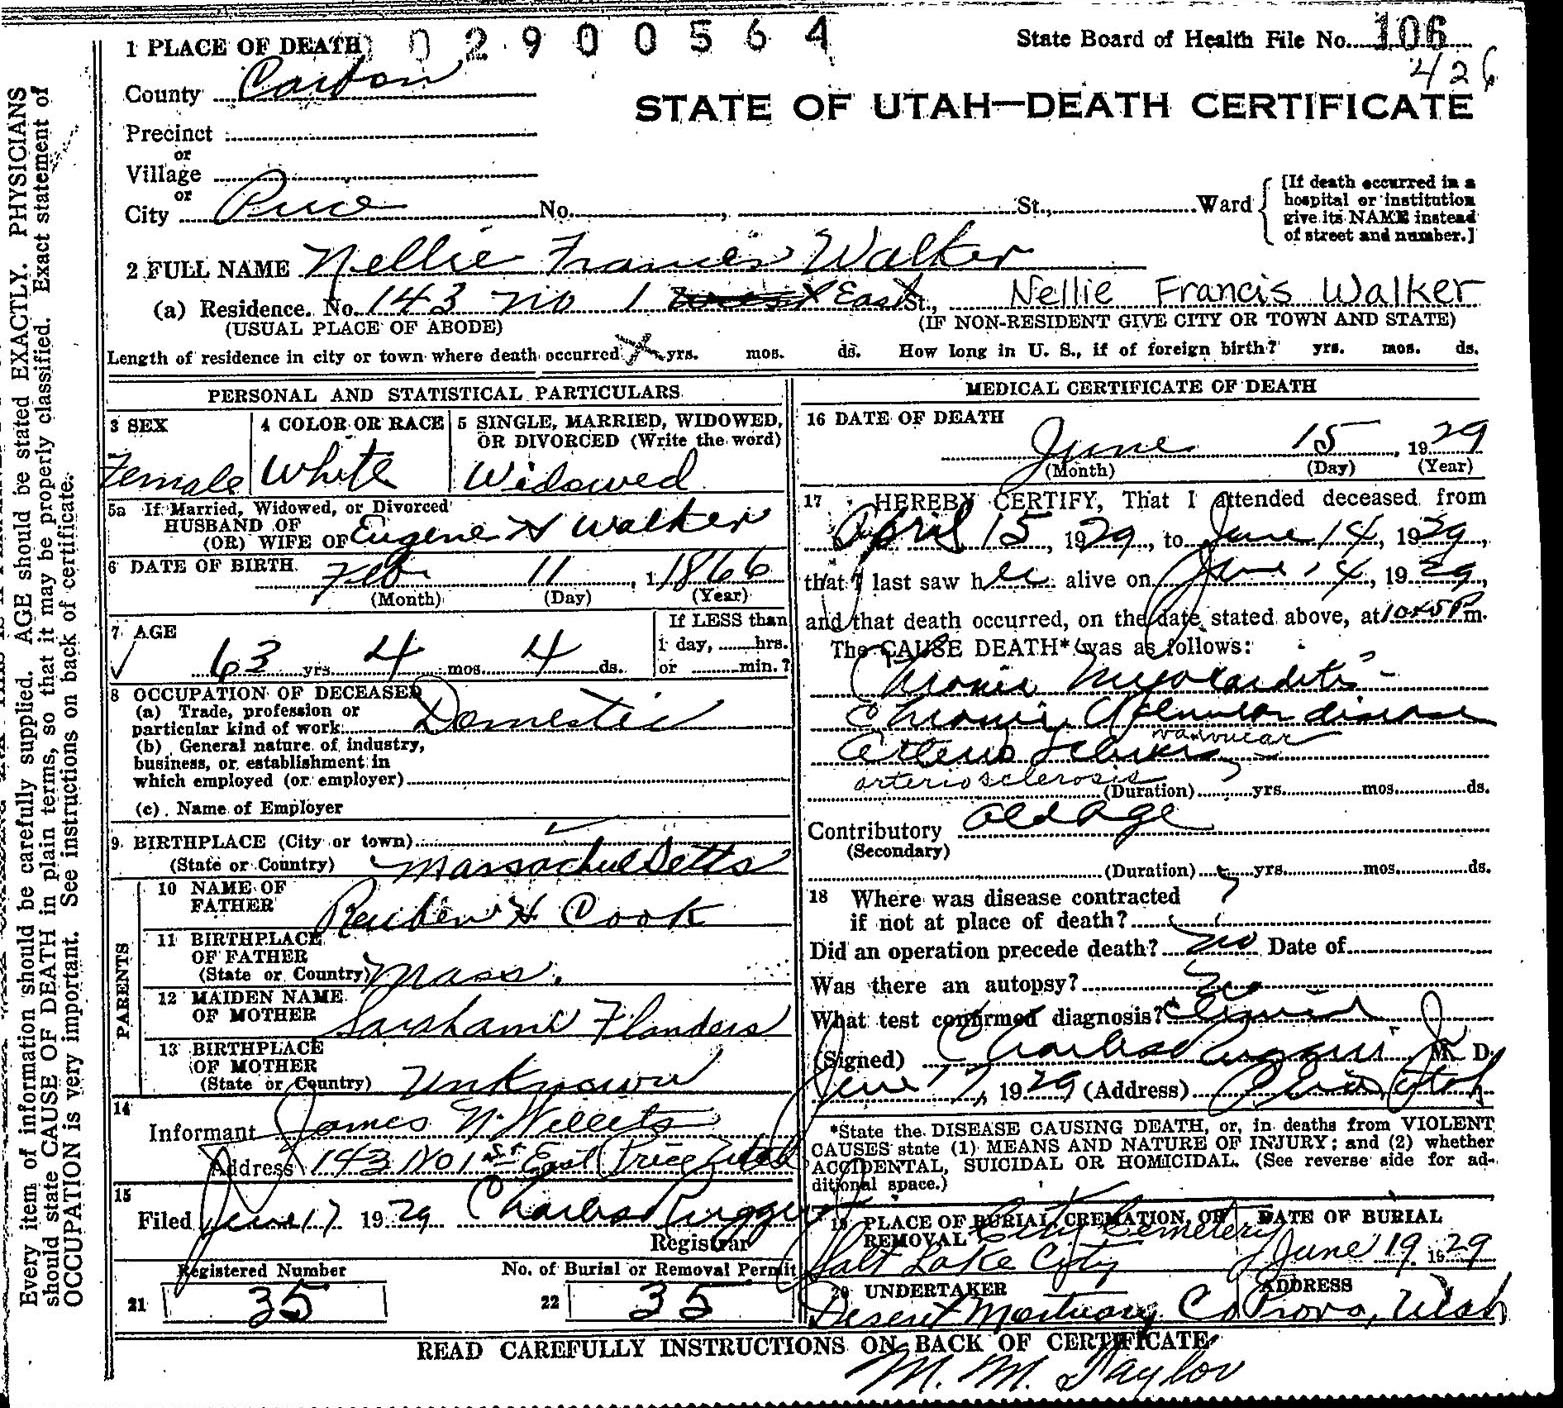 1 PLACE OF DEATH 0 2 9 0 0 5 6 4 State Board of Health File No. 106
426
County Carbon
STATE OF UTAH—DEATH CERTIFICATE
Precinct
or
Village
or
City Price No. , St., Ward
[If death occurred in a
hospital or institution
give its NAME instead
of street and number.]
2 FULL NAME Nellie Francis Walker
(a) Residence. No. 143 no 1 west East St., Nellie Francis Walker
(USUAL PLACE OF ABODE) (IF NON-RESIDENT GIVE CITY OR TOWN AND STATE)
Length of residence in city or town where death occurred X yrs. mos. ds. How long in U. S., if of foreign birth? yrs. mos. ds.
PERSONAL AND STATISTICAL PARTICULARS
3 SEX
Female
4 COLOR OR RACE
White
5 SINGLE, MARRIED, WIDOWED,
OR DIVORCED (Write the word)
Widowed
5a If Married, Widowed, or Divorced
HUSBAND OF
(OR) WIFE OF Eugene H Walker
6 DATE OF BIRTH Feb 11, 1 1866
(Month) (Day) (Year)
7 AGE
63 yrs. 4 mos. 4 ds.
If LESS than
1 day, hrs.
or min.?
8 OCCUPATION OF DECEASED
(a) Trade, profession or
particular kind of work Domestic
(b) General nature of industry,
business, or establishment in
which employed (or employer)
(c) Name of Employer
9 BIRTHPLACE (City or town)
(State or Country) Massachusetts
PARENTS
10 NAME OF
FATHER Reuben H Cook
11 BIRTHPLACE
OF FATHER
(State or Country) Mass.
12 MAIDEN NAME
OF MOTHER Flanders
13 BIRTHPLACE
OF MOTHER
(State or Country) Unknown
14
Informant James N. Willets
Address 143 No 1st East Price Utah
15
Filed June 17 1929 Charles Ruggeri
Registrar
Registered Number No. of Burial or Removal Permit
21 35 22 35
MEDICAL CERTIFICATE OF DEATH
16 DATE OF DEATH
June 15, 1929
(Month) (Day) (Year)
17 I HEREBY CERTIFY, That I attended deceased from
April 15, 1929, to June 14, 1929,
that I last saw her alive on June 14, 1929,
and that death occurred, on the date stated above, at 10:45 P m.
The CAUSE DEATH* was as follows:
Chronic Myocarditis -
Chronic Valvular disease
valvular
Arterio Sclerosis
arteriosclerosis
(Duration) yrs. mos. ds.
Contributory old age
(Secondary)
(Duration) yrs. mos. ds.
18 Where was disease contracted
if not at place of death?
Did an operation precede death? no Date of
Was there an autopsy? no
What test confirmed diagnosis? Clinical
(Signed) Charles Ruggeri M. D.
June 17, 1929 (Address) Price, Utah
*State the DISEASE CAUSING DEATH, or, in deaths from VIOLENT
CAUSES state (1) MEANS AND NATURE OF INJURY; and (2) whether
ACCIDENTAL, SUICIDAL OR HOMICIDAL. (See reverse side for ad-
ditional space.)
19 PLACE OF BURIAL, CREMATION, OR DATE OF BURIAL
REMOVAL City Cemetery
Salt Lake City June 19 1929
20 UNDERTAKER ADDRESS
Deseret Mortuary Co Provo, Utah
READ CAREFULLY INSTRUCTIONS ON BACK OF CERTIFICATE
M. M. Taylor
Every item of information should be carefully supplied. AGE should be stated EXACTLY. PHYSICIANS
should state CAUSE OF DEATH in plain terms, so that it may be properly classified. Exact statement of
OCCUPATION is very important. See instructions on back of certificate.